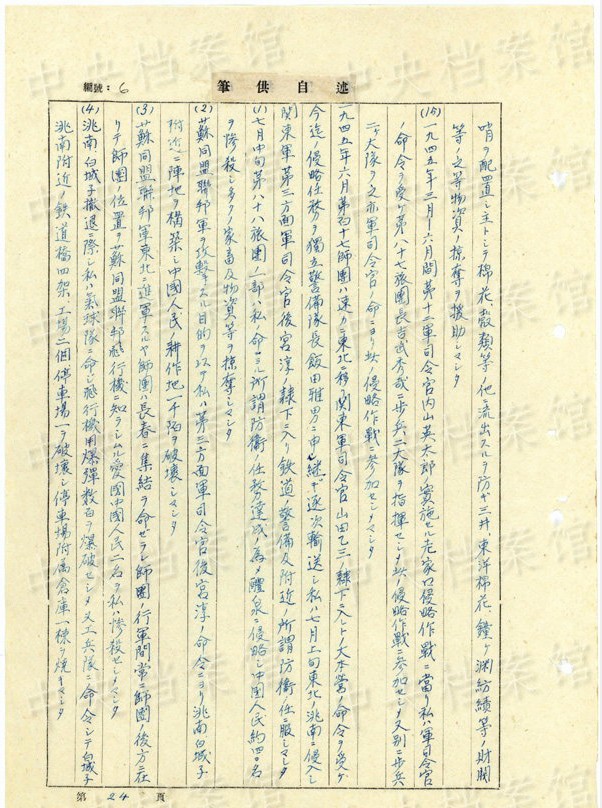 述自供筆
編號:6
哨ヲ配置シ主トシテ棉花、穀類等ノ他ニ流出スルヲ防ギ三井、東洋棉花、鐘ケ淵紡績等ノ財閥
等ノ之等物資ノ掠奪ヲ援助シマシタ
(15)一九四五年三月—六月間第十二軍司令官内山英太郎ノ実施セル老家口侵略作戦ニ當リ私ハ軍司令官
ノ命令ヲ受ケ第八十七旅團長吉武秀哉ニ歩兵二大隊ヲ指揮セシメ此ノ侵略作戦ニ参加セシメ又別ニ歩兵
二ケ大隊ヲ之亦軍司令官ノ命ニヨリ此ノ侵略作戦ニ参加セシメマシタ
一九四五年六月第百十七師團ハ速カニ東北ニ移リ関東軍司令官山田乙三ノ隷下ニ入レトノ大本営ノ命令ヲ受ケ
今迄ノ侵略任務ヲ獨立警備隊長飯田雅男ニ申シ継ギ逐次輸送シ私ハ七月上旬東北ノ洮南ニ侵入シ
関東軍第三方面軍司令官後宮淳ノ隷下ニ入リ鉄道ノ警備及附近ノ所謂防衛任ニ服シマシタ
(1)七月中旬第八十八旅團ノ一部ハ私ノ命ニヨル所謂防衛ノ任務達成ノ為メ醴泉ニ侵略シ中國人民約四〇名
ヲ惨殺シ多クノ家畜及物資等ヲ掠奪シマシタ
(2)蘇同盟聯邦軍ヲ攻撃スル目的ヲ以テ私ハ第三方面軍司令官後宮淳ノ命令ニヨリ洮南白城子
附近ニ陣地ヲ構築シ中國人民ノ耕作地一千陌ヲ破壊シマシタ
(3)蘇同盟聯邦軍東北ニ進軍スルヤ師團ハ長春ニ集結ヲ命ゼラレ師團ノ行軍間常ニ師團ノ後方ニ在
リテ師團ノ位置ヲ蘇同盟聯邦飛行機ニ知ラシムル愛國中國人民二名ヲ私ハ惨殺セシメマシタ
(4)洮南白城子撤退ニ際シ私ハ氣球隊ニ命ジ飛行機用爆彈数百ヲ爆破セシメ又工兵隊ニ命令シテ白城子
洮南附近ノ鉄道橋四架、工場二個停車場一ヲ破壊シ停車場附属倉庫一棟ヲ焼キマシタ
第24頁
中央档案馆